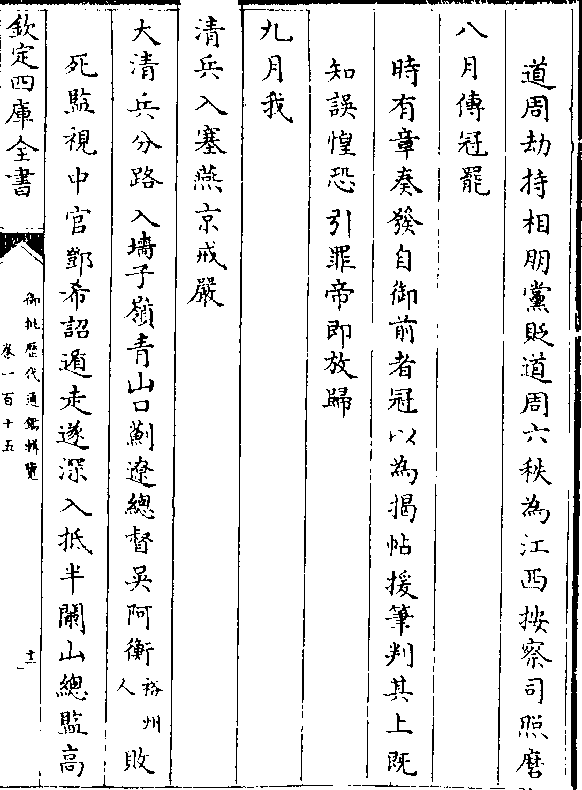 道周劫持相朋黨貶道周六秩為江西按察司照磨
八月傳冠罷
時有章奏發自御前者冠以為揭帖援筆判其上既
知誤惶恐引罪帝即放歸
九月我
清兵入塞燕京戒嚴
大清兵分路入墻子嶺青山口薊遼總督吳阿衡裕州人敗
死監視中官鄧希詔遁走遂深入抵半闌山總監高
欽定四庫全書
御批歷代通鑑輯覽
卷一百十五
十二